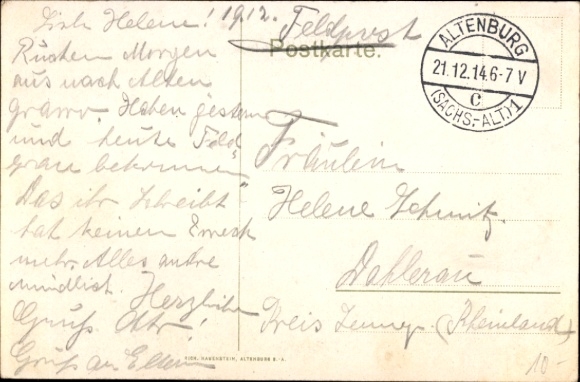 Lieb Helene! 19.12.
Rücken Morgen
aus nach Alten
grabow. Haben gestern
und heute Feld
grau bekommen
Das ihr schreibt
hat keinen Zweck
mehr. Alles andre
mündlich. Herzliche
Gruß
Gruß an Eltern
Feldpost
Postkarte.
ALTENBURG
21.12.14.6-7 V
c
(SACHS.-ALT.) 1
Fräulein
Helene Schmitz.
Dahlerau
Kreis Lennep (Rheinland)
RICH. HAUENSTEIN, ALTENBURG S.-A.
10-